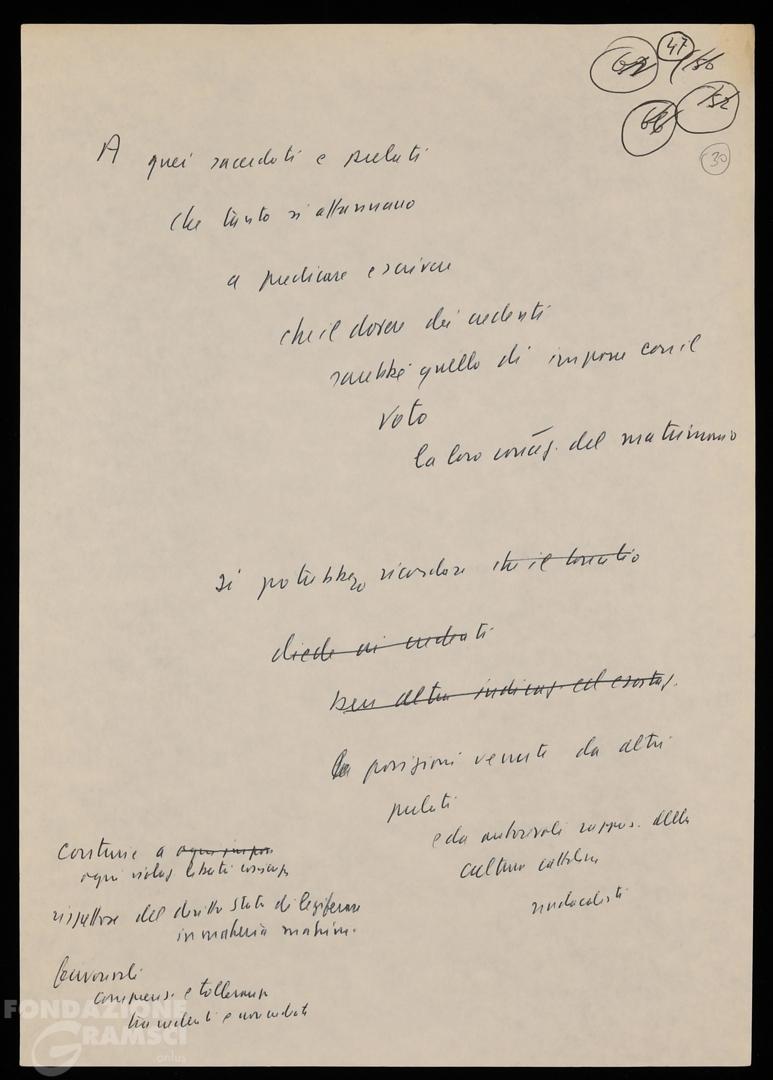 47
62 150
66 152
30
A quei sacerdoti e prelati
che tanto si affannano
a predicare e scrivere
che il dovere dei credenti
sarebbe quello di imporre con il
voto
la loro concez. del matrimonio
si potrebbero ricordare che il concilio
diede ai credenti
ben altre indicaz. ed esortaz.
le posizioni venute da altri
prelati
e da autorevoli rappres. della
cultura cattolica
sindacalisti
contrarie a
ogni violaz libertà coscienza
rispettose del diritto Stato di legiferare
in materia matrim.
favorevoli
comprens. e tolleranza
tra credenti e non credenti
FONDAZIONE
GRAMSCI
onlus